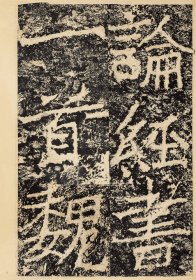 論經書
一首魏